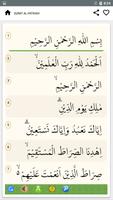 8:34
SURAT AL-FATIHAH
بِسْمِ اللَّهِ الرَّحْمَٰنِ الرَّحِيمِ
الْحَمْدُ لِلَّهِ رَبِّ الْعَالَمِينَ
الرَّحْمَٰنِ الرَّحِيمِ
مَٰلِكِ يَوْمِ الدِّينِ
إِيَّاكَ نَعْبُدُ وَإِيَّاكَ نَسْتَعِينُ
اهْدِنَا الصِّرَاطَ الْمُسْتَقِيمَ
صِرَاطَ الَّذِينَ أَنْعَمْتَ عَلَيْهِمْ